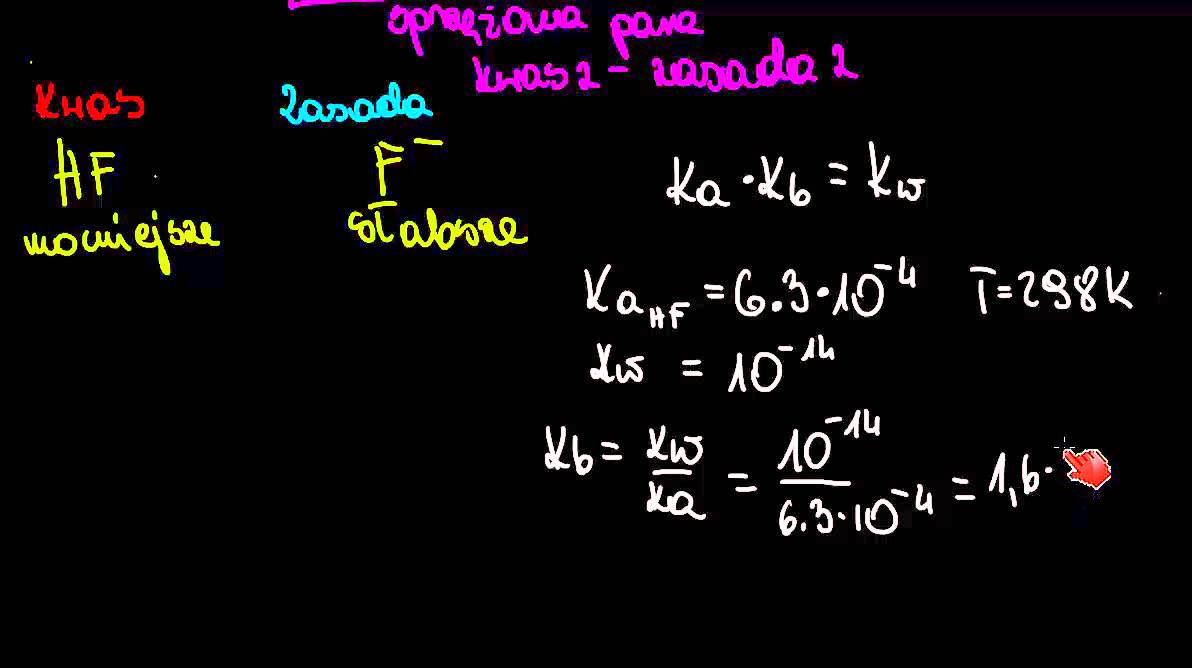 sprzężona para
kwas 2 - zasada 2
kwas zasada
HF F⁻
mocniejsze słabsze
Ka · Kb = Kw
Ka HF = 6.3 · 10⁻⁴ T = 298K
Kw = 10⁻¹⁴
Kb = Kw/Ka = 10⁻¹⁴/6.3 · 10⁻⁴ = 1,6 ·